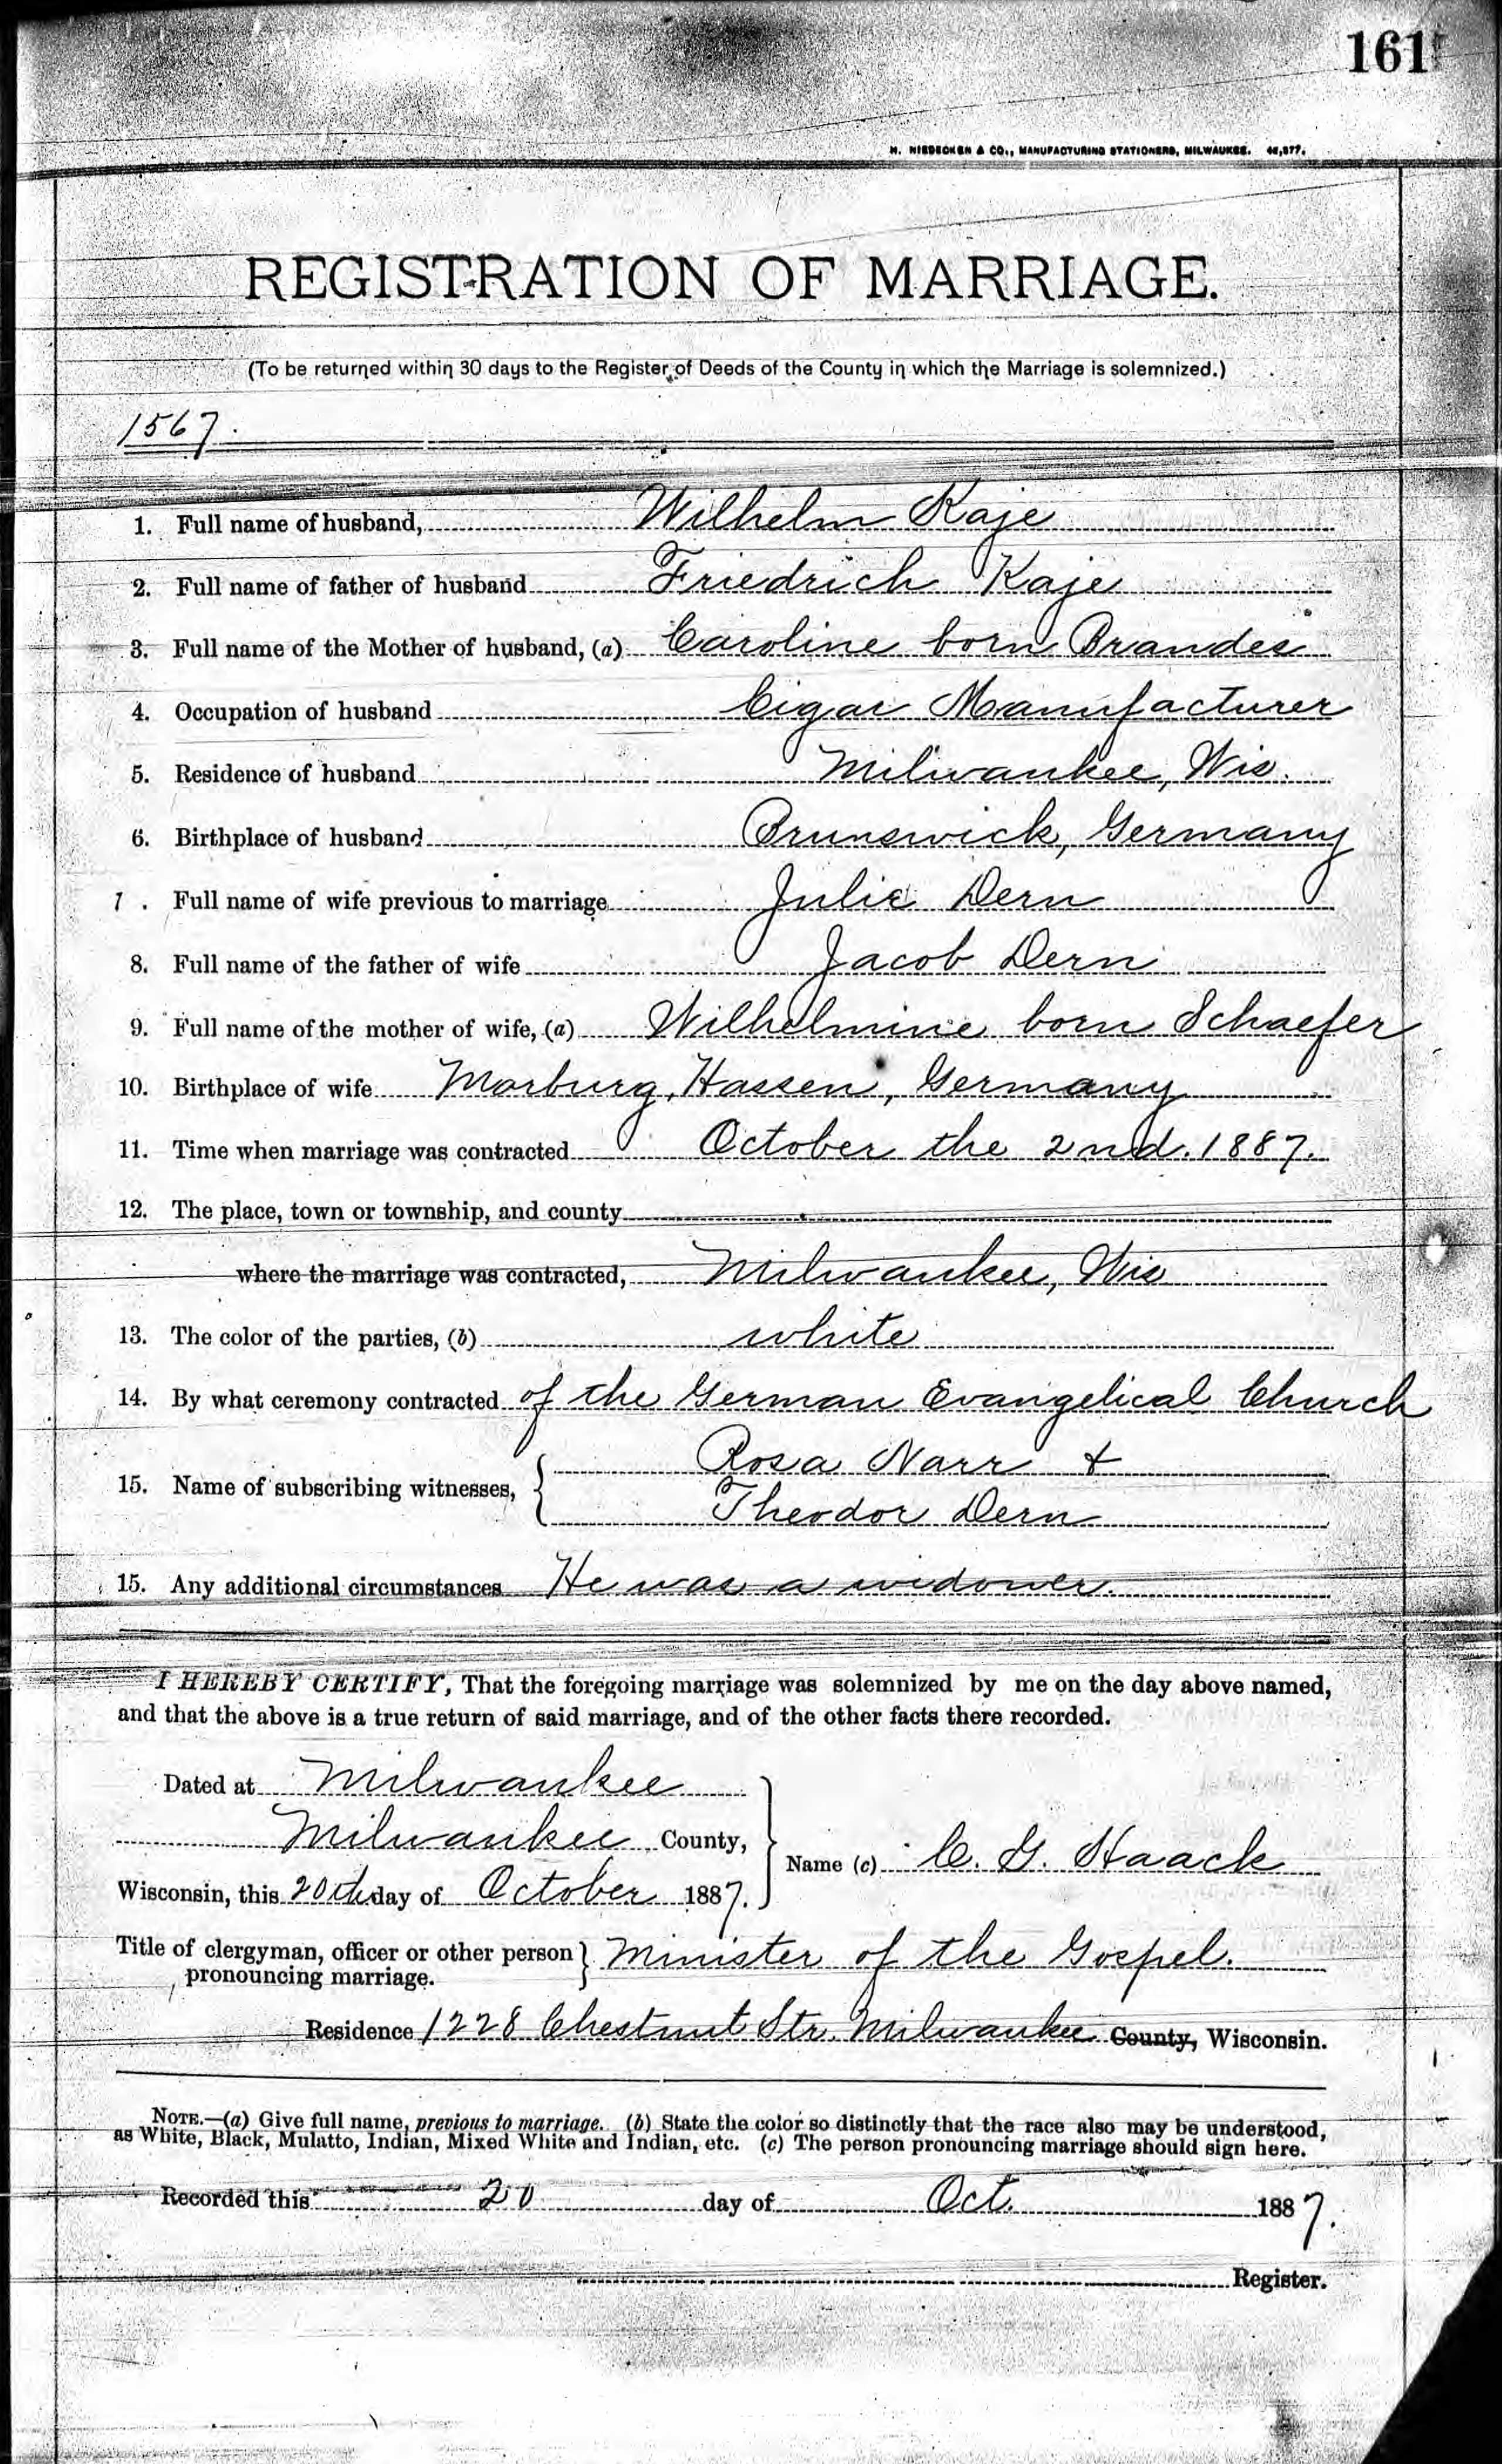 161
H. NIEDECKEN & CO., MANUFACTURING STATIONERS, MILWAUKEE. 46,877.
REGISTRATION OF MARRIAGE.
(To be returned within 30 days to the Register of Deeds of the County in which the Marriage is solemnized.)
1567.
1. Full name of husband, Wilhelm Kaje
2. Full name of father of husband Friedrich Kaje
3. Full name of the Mother of husband, (a) Caroline born Brandes
4. Occupation of husband Cigar Manufacturer
5. Residence of husband Milwaukee, Wis.
6. Birthplace of husband Brunswick, Germany
7. Full name of wife previous to marriage Julie Dern
8. Full name of the father of wife Jacob Dern
9. Full name of the mother of wife, (a) Wilhelmine born Schaefer
10. Birthplace of wife Marburg, Hassen, Germany
11. Time when marriage was contracted October the 2nd. 1887.
12. The place, town or township, and county
where the marriage was contracted, Milwaukee, Wis
13. The color of the parties, (b) white
14. By what ceremony contracted of the German Evangelical Church
15. Name of subscribing witnesses, { Rosa Narr &
Theodor Dern
15. Any additional circumstances He was a widower.
I HEREBY CERTIFY, That the foregoing marriage was solemnized by me on the day above named,
and that the above is a true return of said marriage, and of the other facts there recorded.
Dated at Milwaukee
Milwaukee County,
Name (c) C. G. Haack
Wisconsin, this 20th day of October 1887.
Title of clergyman, officer or other person } Minister of the Gospel.
pronouncing marriage.
Residence 1228 Chestnut Str. Milwaukee County, Wisconsin.
NOTE.—(a) Give full name, previous to marriage. (b) State the color so distinctly that the race also may be understood,
as White, Black, Mulatto, Indian, Mixed White and Indian, etc. (c) The person pronouncing marriage should sign here.
Recorded this 20 day of Oct. 1887.
Register.